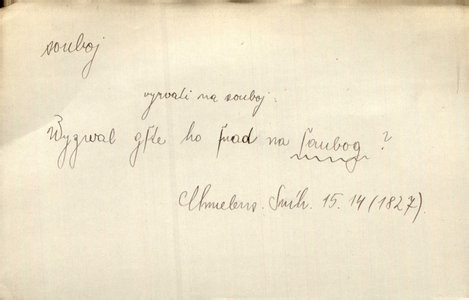 souboj
vyzvati na souboj:
Wyzwal gste ho snad na saubog?
Chmelens. Sních. 15. 14 (1827).